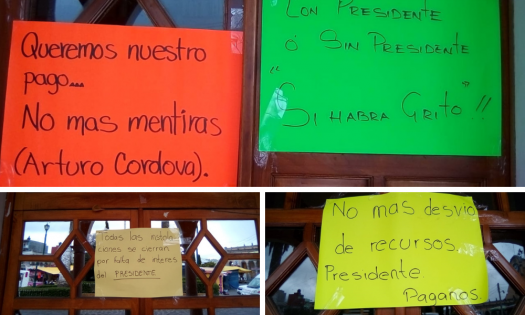 Queremos nuestro
pago...
No mas mentiras
(Arturo Cordova).
CON PRESIDENTE
ó SIN PRESIDENTE
"SI HABRA GRITO"!!
Todas las instala-
ciones se cierran
por falta de interes
del PRESIDENTE
No mas desvio
de recursos
Presidente
Paganos.